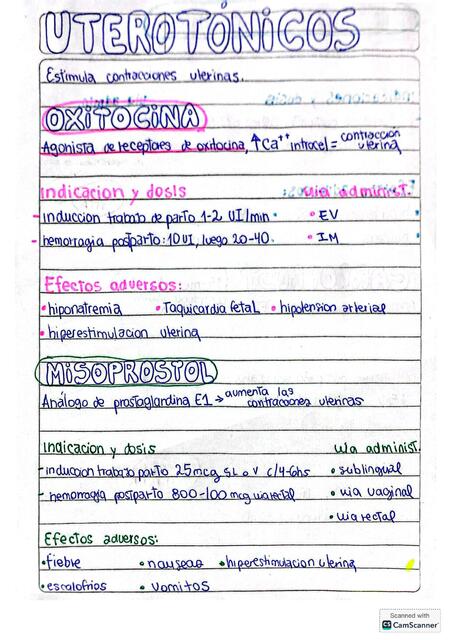 UTEROTÓNICOS
Estimula contracciones uterinas.
OXITOCINA
Agonista de receptores de oxitocina, ↑Ca++ intracel = contracción uterina
Indicacion y dosis
via administ.
- induccion trabajo de parto 1-2 UI/min
• EV
- hemorragia postparto: 10 UI, luego 20-40.
• IM
Efectos adversos:
• hiponatremia • Taquicardia fetal • hipotension arterial
• hiperestimulacion uterina
MISOPROSTOL
Análogo de prostaglandina E1 → aumenta las contracciones uterinas
Indicacion y dosis
via administ.
- induccion trabajo parto 25mcg SL o V c/4-6hs
• sublingual
- hemorragia postparto 800-100 mcg via rectal
• via vaginal
• via rectal
Efectos adversos:
• fiebre • nauseas • hiperestimulacion uterina
• escalofrios • vomitos
Scanned with
CS CamScanner